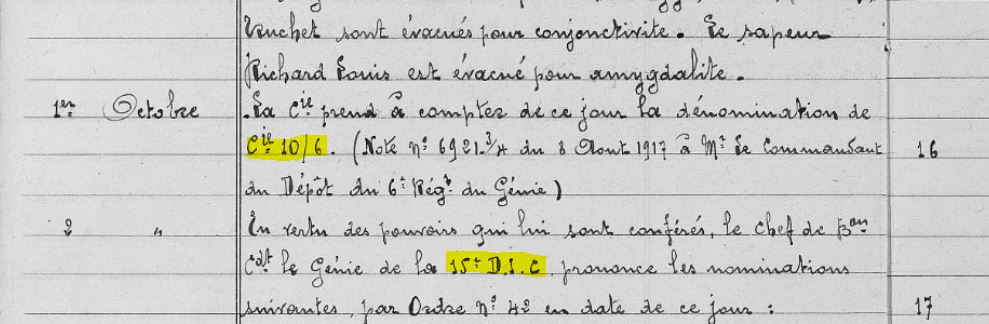 Vuchet sont évacués pour conjonctivite. Le sapeur
Richard Louis est évacué pour amygdalite.
1er Octobre La Cie prend à compter de ce jour la dénomination de
Cie 10/6. (Note No 6921.3/4 du 8 Aout 1917 à Mr le Commandant 16
du Dépôt du 6e Régt du Génie)
2 " En vertu des pouvoirs qui lui sont conférés, le Chef de Bon
Cdt le Génie de la 15e D.I.C. prononce les nominations
suivantes, par Ordre No 42 en date de ce jour : 17